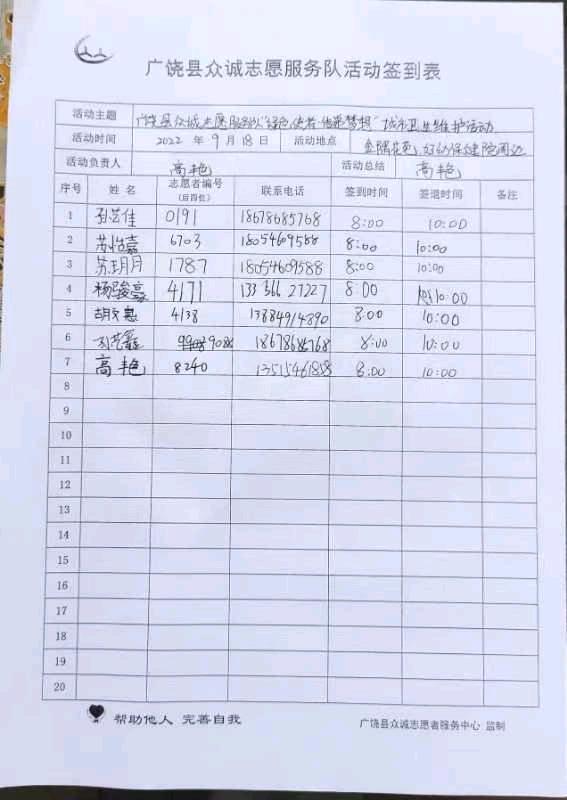 广饶县众诚志愿服务队活动签到表
活动主题 广饶县众诚志愿服务队"绿色使者 传递梦想"城市卫生维护活动
活动时间 2022 年 9 月 18 日 活动地点 妇幼保健院周边
活动负责人 高艳 活动总结 高艳
序号 姓 名 志愿者编号 (后四位) 联系电话 签到时间 签退时间 备注
1 孙艺佳 0191 18678685768 8:00 10:00
2 苏怡嘉 6703 18054609588 8:00 10:00
3 苏玥月 1787 18054609588 8:00 10:00
4 杨骏豪 4171 133 366 27227 8:00 10:00
5 胡文惠 4138 13884914890 8:00 10:00
6 孙艺鑫 18678685768 8:00 10:00
7 高艳 8240 13515461858 8:00 10:00
8
9
10
11
12
13
14
15
16
17
18
19
20
帮助他人 完善自我 广饶县众诚志愿者服务中心 监制